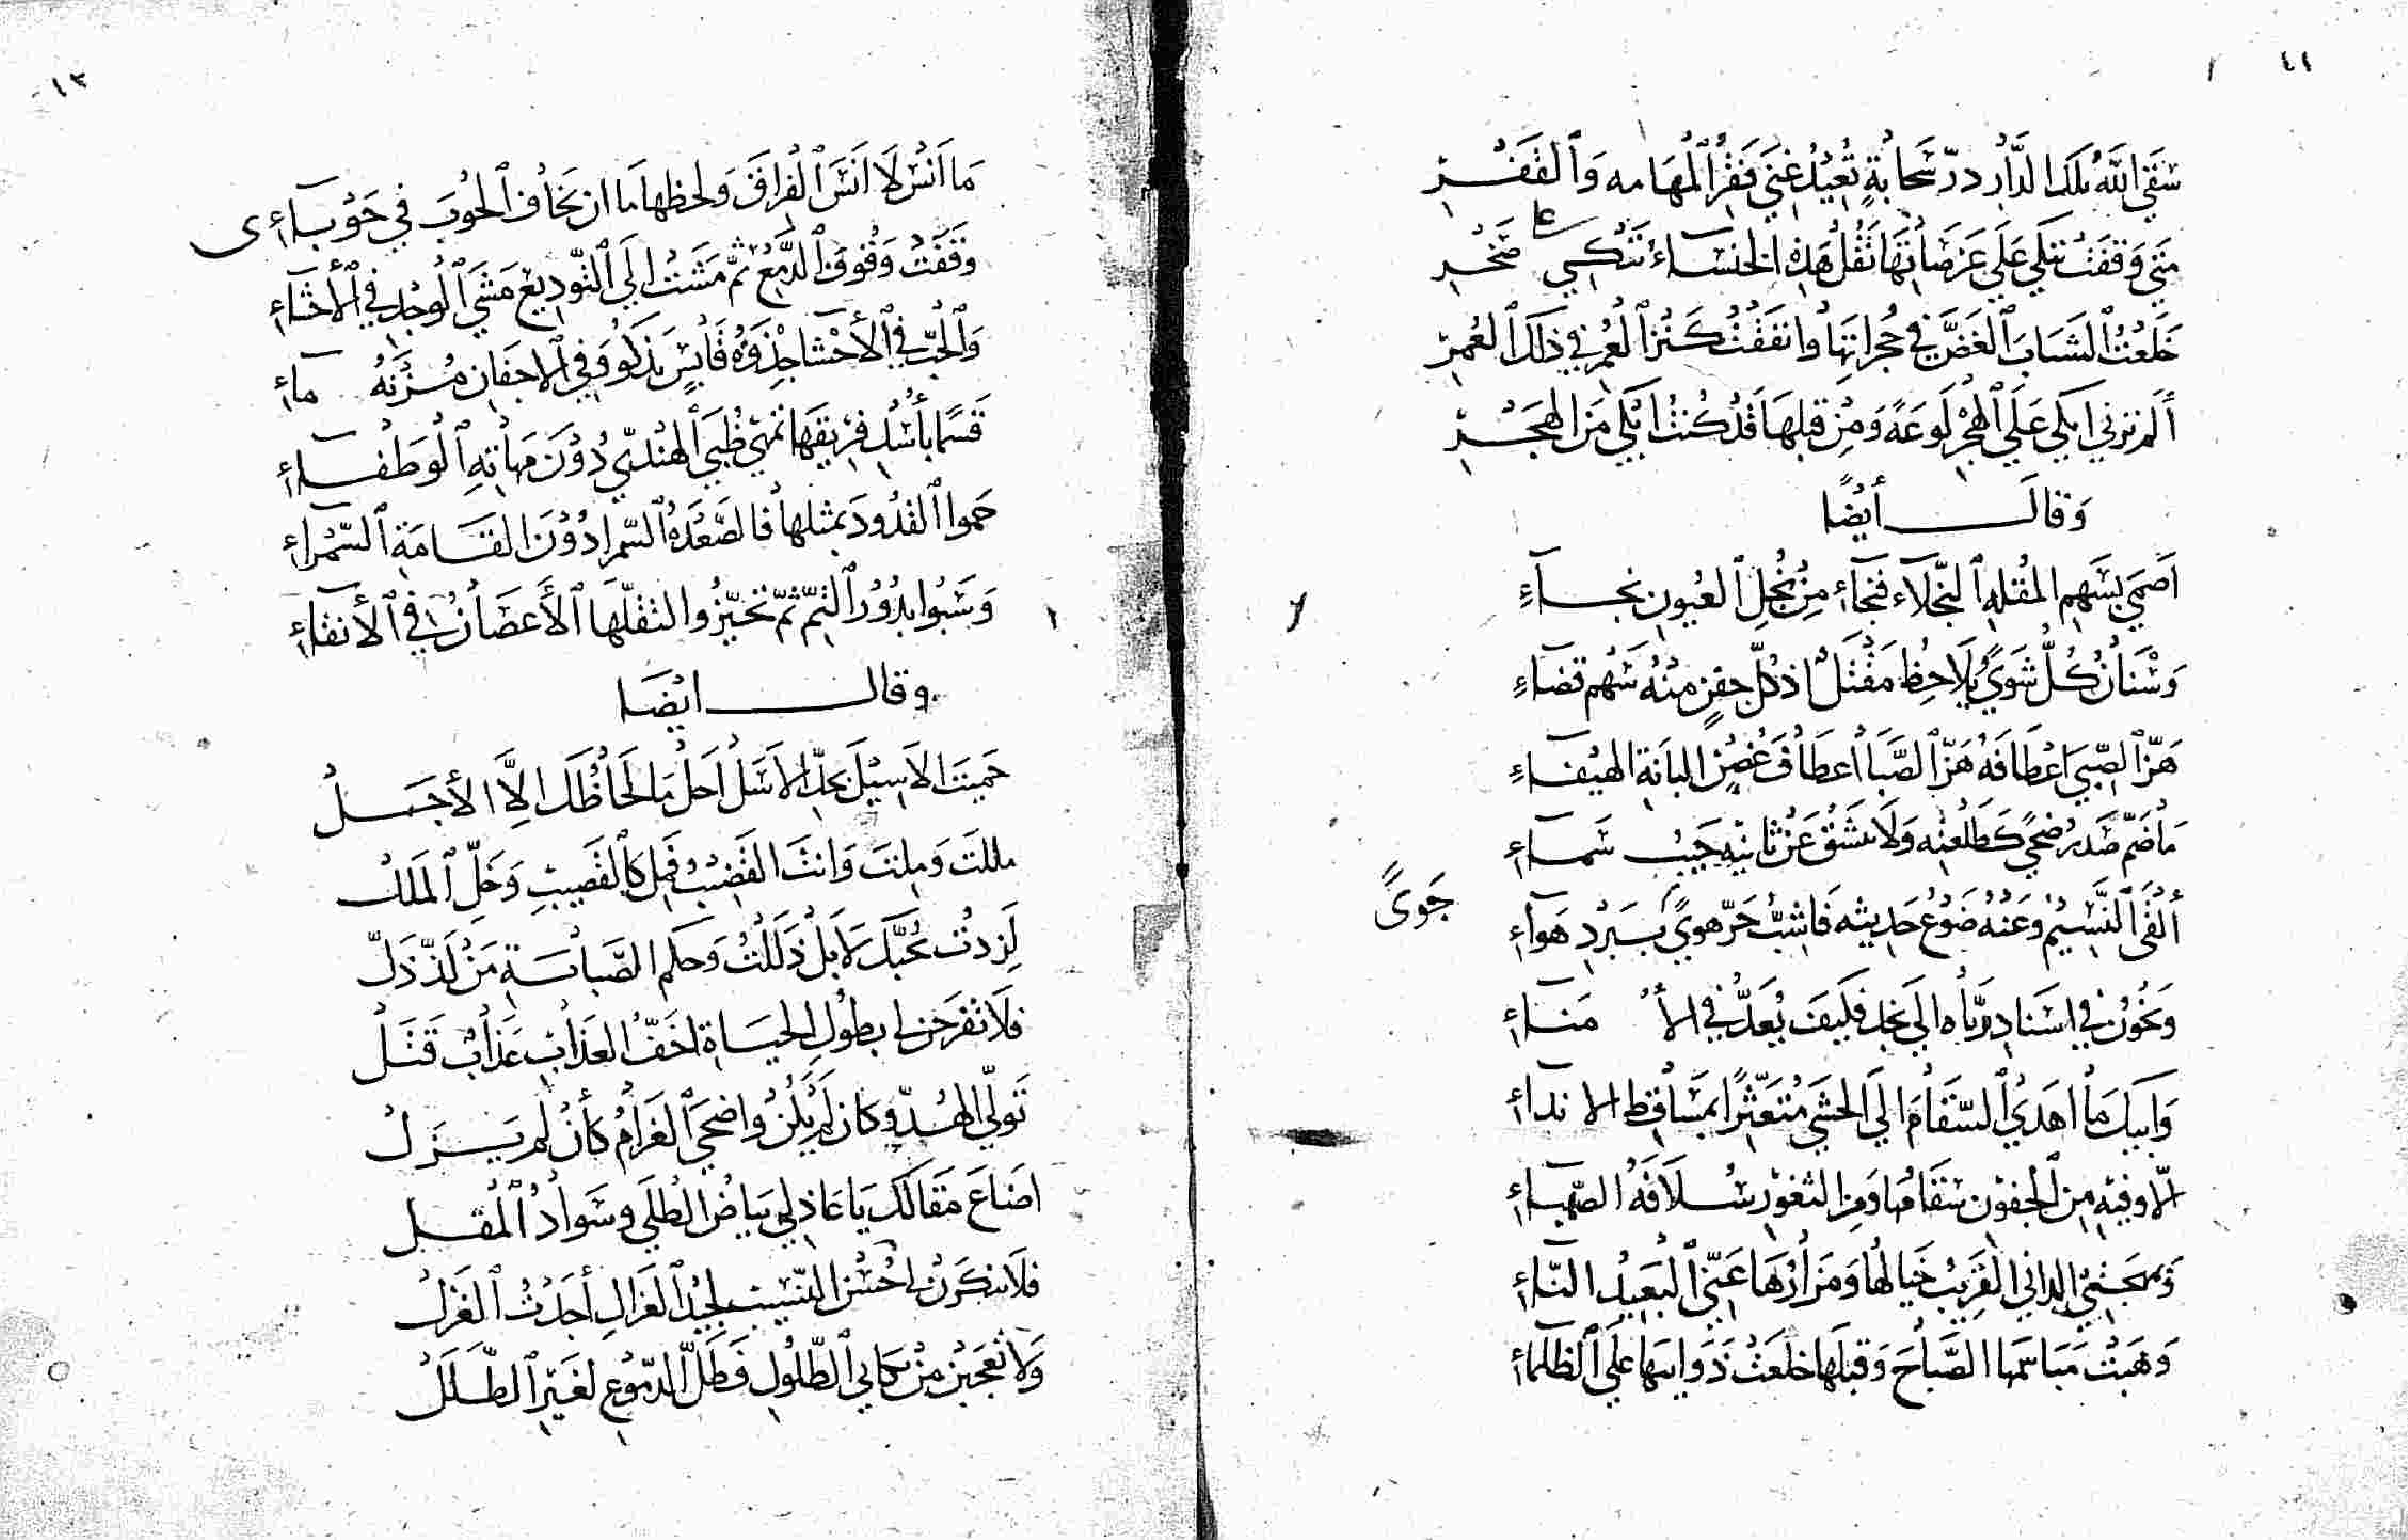 ٤١
سَقَى اللهُ تلكَ الدَّارَ درّ سَحابةٍ تُعيدُ غنيَ فَقرِ المَهَامه وَالقَفْرِ
مَتى وَقفَتْ تبكي عَلَى عَرَصَاتِهَا تَقُلْ هَذِهِ الخنسَاءُ تبكي على صَخْرِ
خَلَعْتُ الشَبَابَ الغَضَّ في حُجراتِهَا وانفَقْتُ كَنزَ العُمرِ في ذلكَ العُمرِ
ألم ترني ابكي عَلَى الهَجْرِ لَوعَةً وَمِنْ قبلهَا قَدْ كُنتُ ابْكي مَنَ الهَجْرِ
وَقالَ أيضًا
اَصمَى بسَهم المُقلَةِ النَّجْلاَء فنجآء مِنْ نُجْلِ العُيونِ نجآءِ
وَسْنَانُ كُلُّ شَوىً يُلاَحِظُ مَقْتَلٌ اذ كلّ جفنٍ منْهُ سَهْم قضَاءِ
هَزّ الصِّبى اَعْطَافَهُ هَزّ الصَّبَا اَعطَافَ غُصْنِ البانَةِ الهيْفاءِ
مَا ضمّ صَدرُ ضُحىً كَطَلْعتِه وَلاَ ينشَقُّ عَنْ ثانيْهِ جَيْبُ سَماءِ
ألْفَى النَّسِيْمُ وعَنْهُ ضَوْعُ حَديثه فَاشبّ حَرّ هوىً بِبَردِ هَوآءِ
جَوىً
وَيَخُونُ في اسْنادِ رَيَّاهُ الى نجدٍ فكيفَ يُعَدُّ في الأُمَناءِ
وَابيكَ مَا اهدَى السّقَامَ الى الحَشَى مُتَعَثّرًا بمَسَاقِط الانداءِ
الّا وفيْهِ مِنَ الجفوْن سَقَامُها وَمِنَ الثغوْرِ سُلاَفَةُ الصّهباءِ
وَبمهجَتيْ الداني القَرِيبُ خيَالُها وَمَزَارُهَا عَنّي البَعِيْدُ النّاءِ
وَهَبَتْ مَبَاسمَها الصَّباحَ وَقبلَها خلعَتْ ذَوايبَها عَلَى الظَلماءِ
١٣
مَا اَنْسَ لَا اَنسَ الفراقَ وَلحظها مَا ان يَخافُ الحُوبَ في حَوْباءى
وَقَفَتْ وُقُوفَ الدَّمْعِ ثمّ مَشَتْ الَى التّوديع مَشيَ الوجْدِ في الأحشاءِ
وَالحُبّ في الأحْشَا جِذْوَةُ قَابسٍ تذكو وَفي الاجفان مُزْنَةُ ماءِ
قَسَمًا باُسْدِ فرِيقهَا تحمي ظُبَى الهنديّ دُوْنَ مهَاتِهِ الوَطْفاءِ
حَموا القُدُودَ بمثلها فالصَّعْدَةُ السّمرا دُوْنَ القَامَةِ السّمراءِ
وَسَبُوا بدُوْرَ التِمّ ثمّ تخيّزُوا لتقلّها الأغصَانُ في الأنقاءِ
وقال ايْضَا
حَميتَ الاَسِيْلَ بحدّ الاسَلْ اَحل مَا لحَاظُكَ الّا الأجَلْ
مللتَ وَملتَ وَانتَ القَضيْبُ فَمِل كَالقَضيبِ وَخَلِّ المَلَلْ
لَزدْتُ بحُبّكَ لَا بَلْ ذَلَلْتُ وَحكم الصّبابَةِ مَنْ لَذّ ذَلّ
فَلاَ تفرَحَن بطُولِ الحيَاةِ اخَفّ العَذابِ عَذَابٌ قَتَلْ
تَولّى الهُدّو كان لَمْ يكُنْ واضحَى الغَرَامُ كأنْ لم يَزَلْ
اضَاعَ مَقَالَكَ يَا عَاذِلي بيَاضُ الطُلَى وسَوادُ المُقلْ
فلاَ تنكَرَنْ حُسْنَ النّسيبِ لجيْدِ الغَزالِ أجَدْتُ الغَزَلْ
وَلاَ تعجَبَنْ منْ بكايي الطُّلُولِ فَطَلّ الدّمُوعِ لغَيْرِ الطَلَلْ